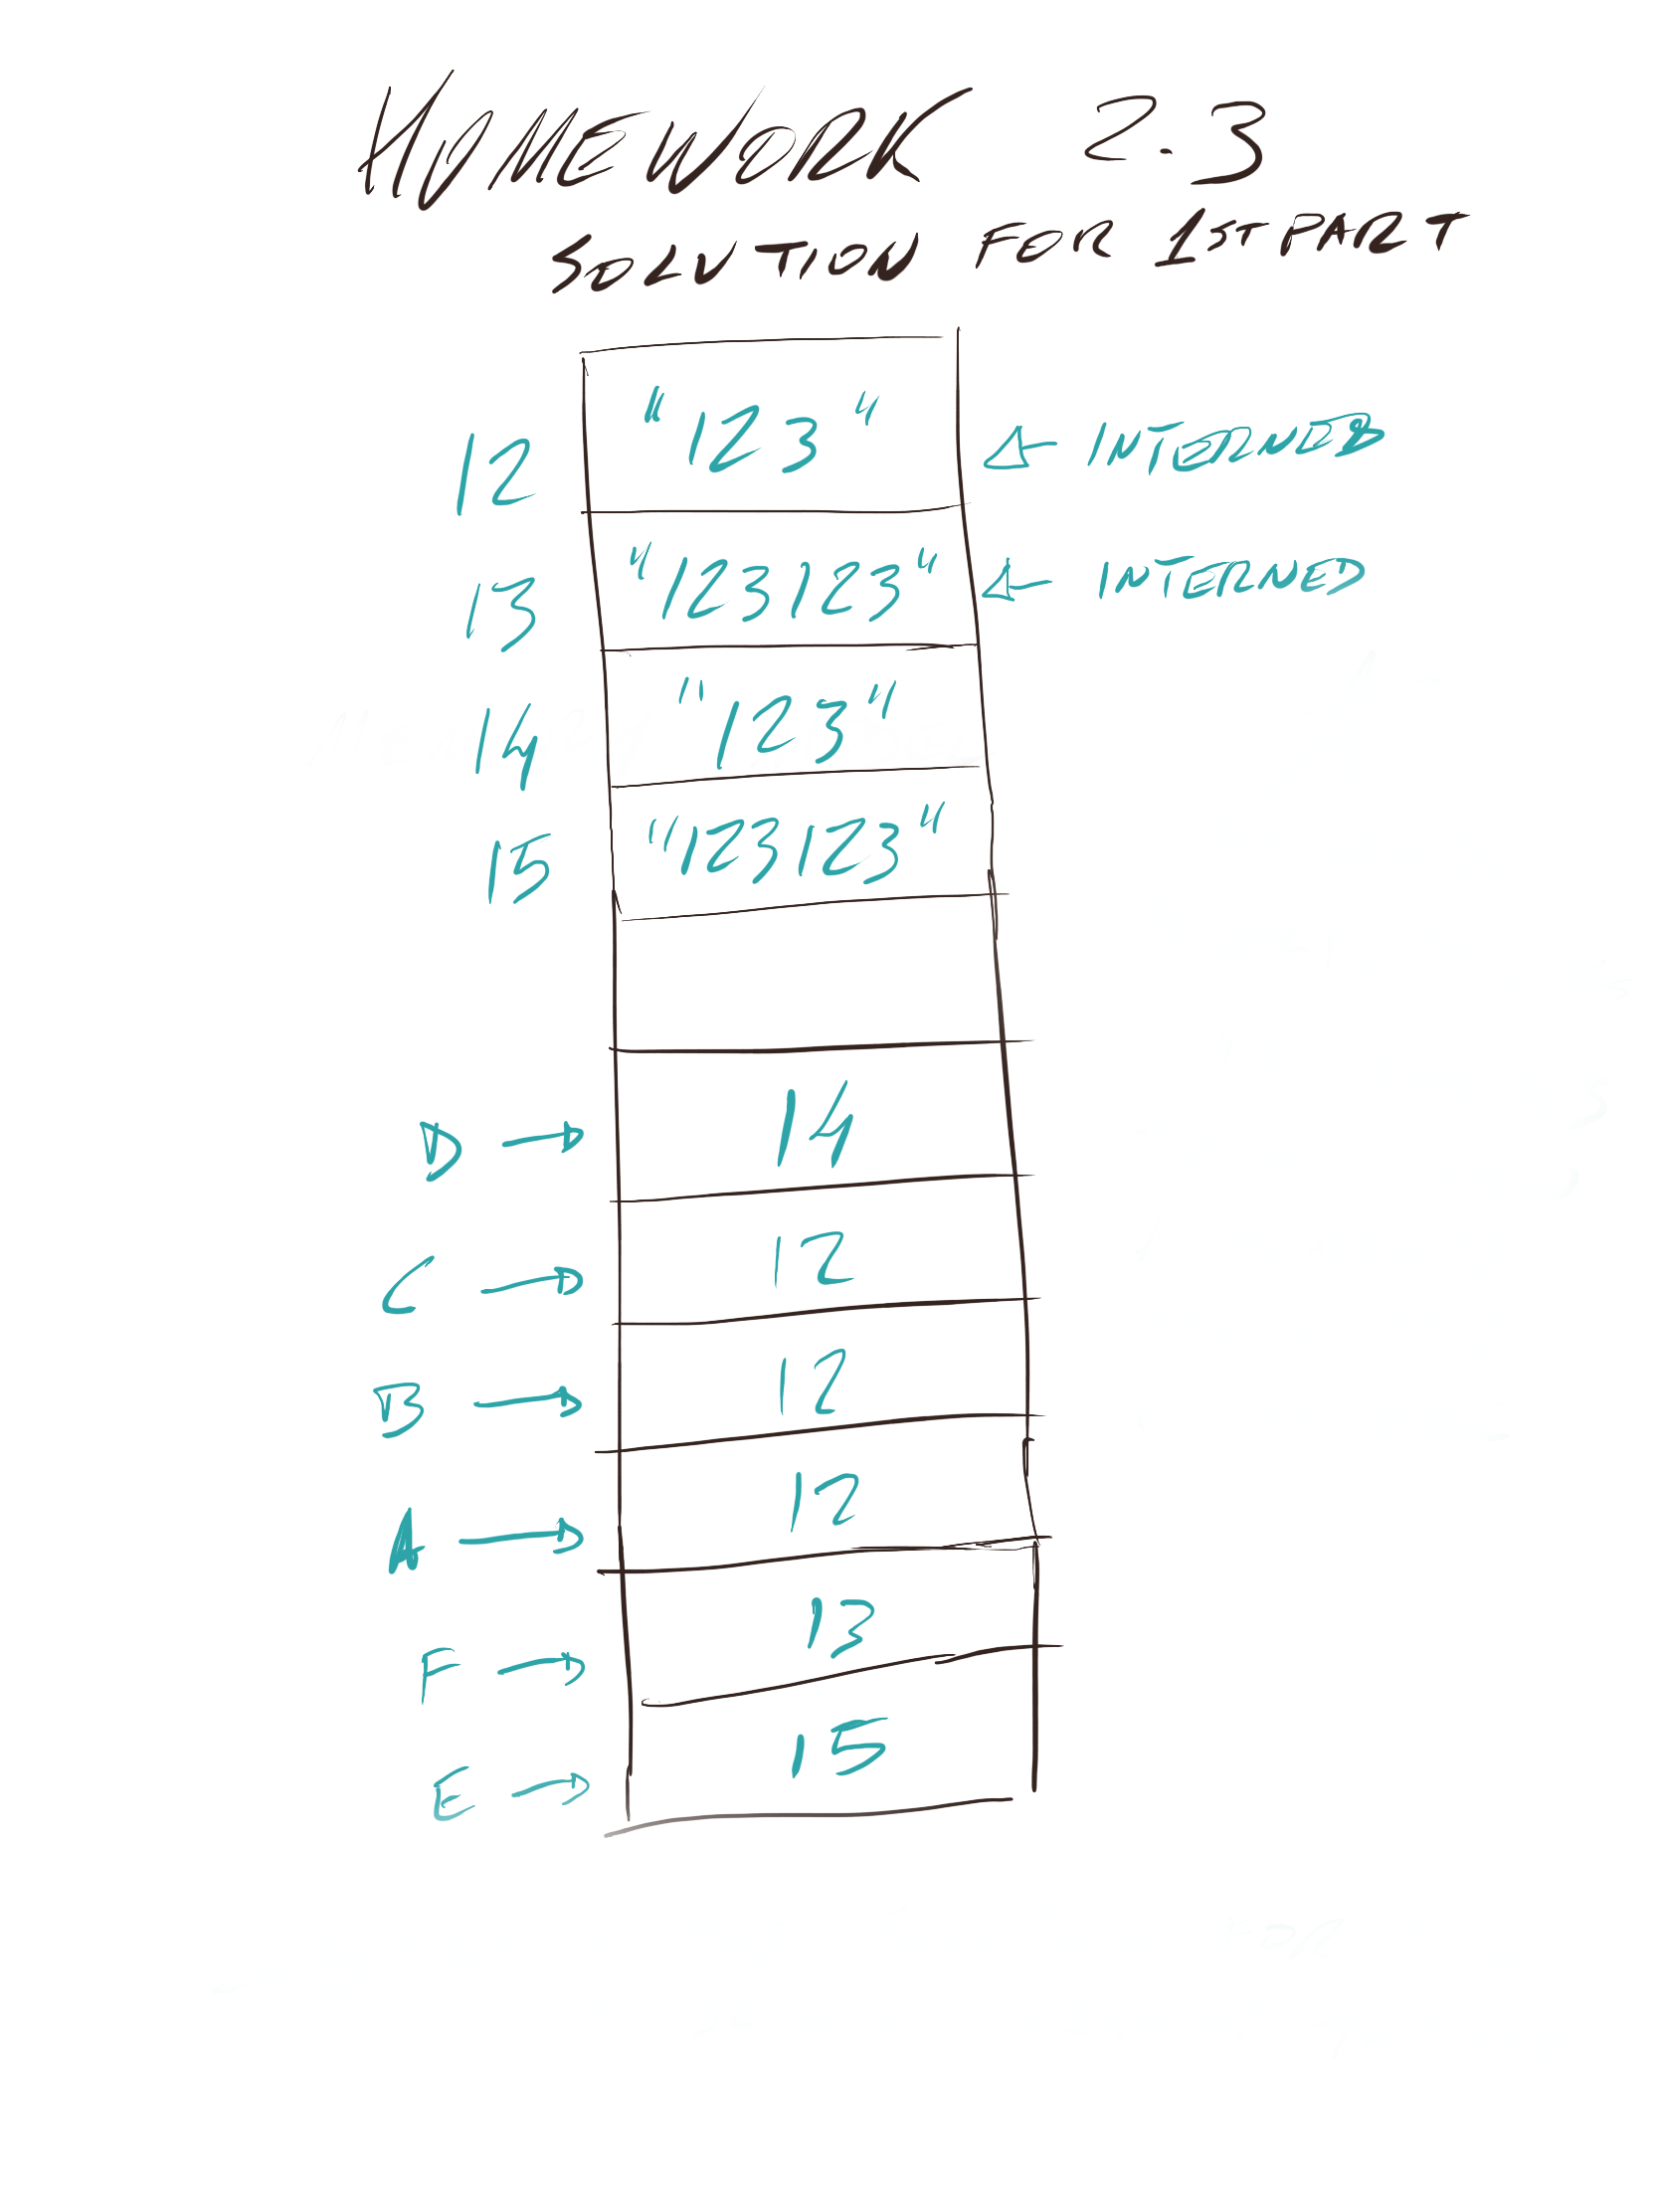 HOMEWORK 2.3
SOLUTION FOR 1ST PART
12 "123" ← INTERNED
13 "123123" ← INTERNED
14 "123"
15 "123123"
D → 14
C → 12
B → 12
A → 12
F → 13
E → 15